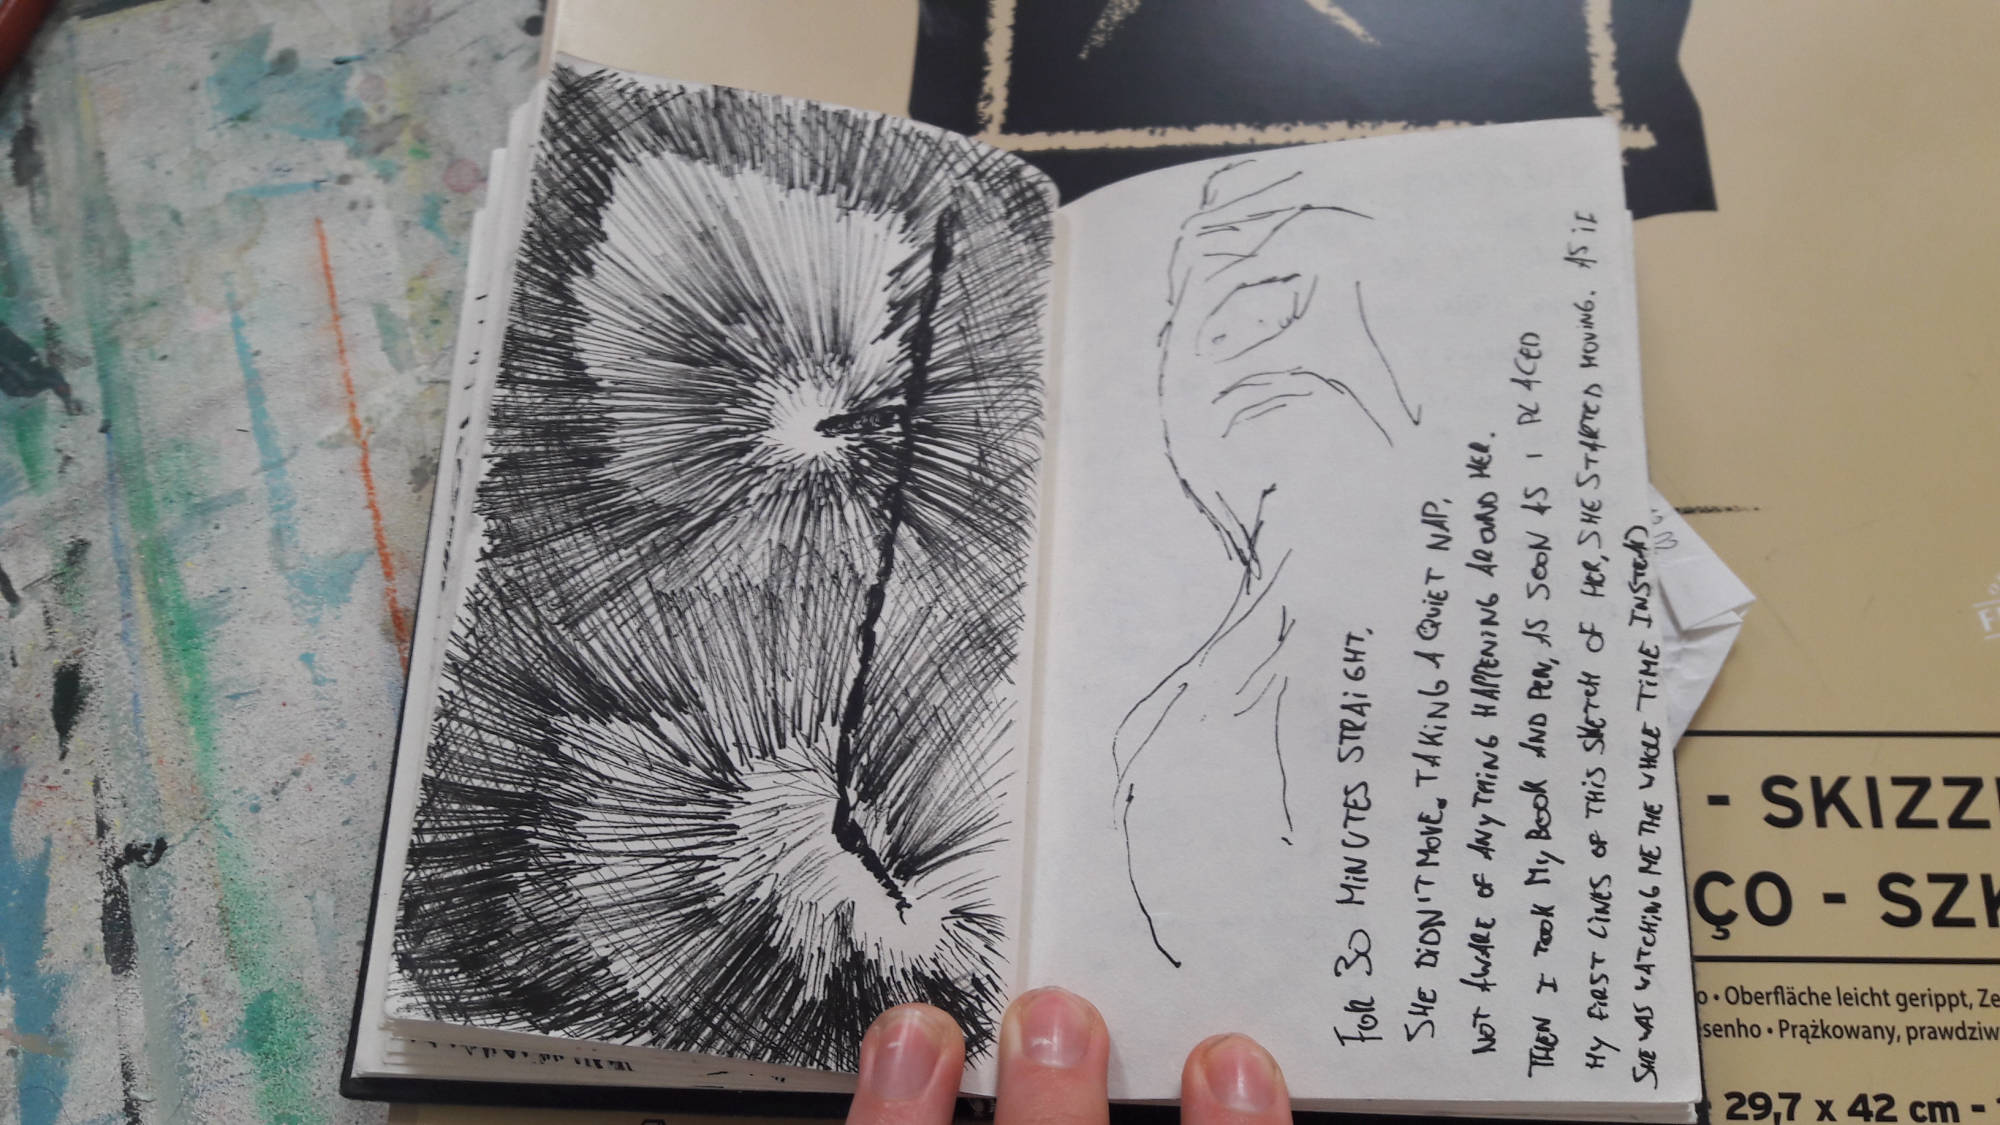 FOR 30 MINUTES STRAIGHT,
SHE DIDN'T MOVE. TAKING A QUIET NAP,
NOT AWARE OF ANYTHING HAPPENING AROUND HER.
THEN I TOOK MY BOOK AND PEN, AS SOON AS I PLACED
MY FIRST LINES OF THIS SKETCH OF HER, SHE STARTED MOVING. AS IF
SHE WAS WATCHING ME THE WHOLE TIME INSTEAD
- SKIZZ
ÇO - SZK
o • Oberfläche leicht gerippt, Ze
senho • Prążkowany, prawdziw
29,7 x 42 cm -